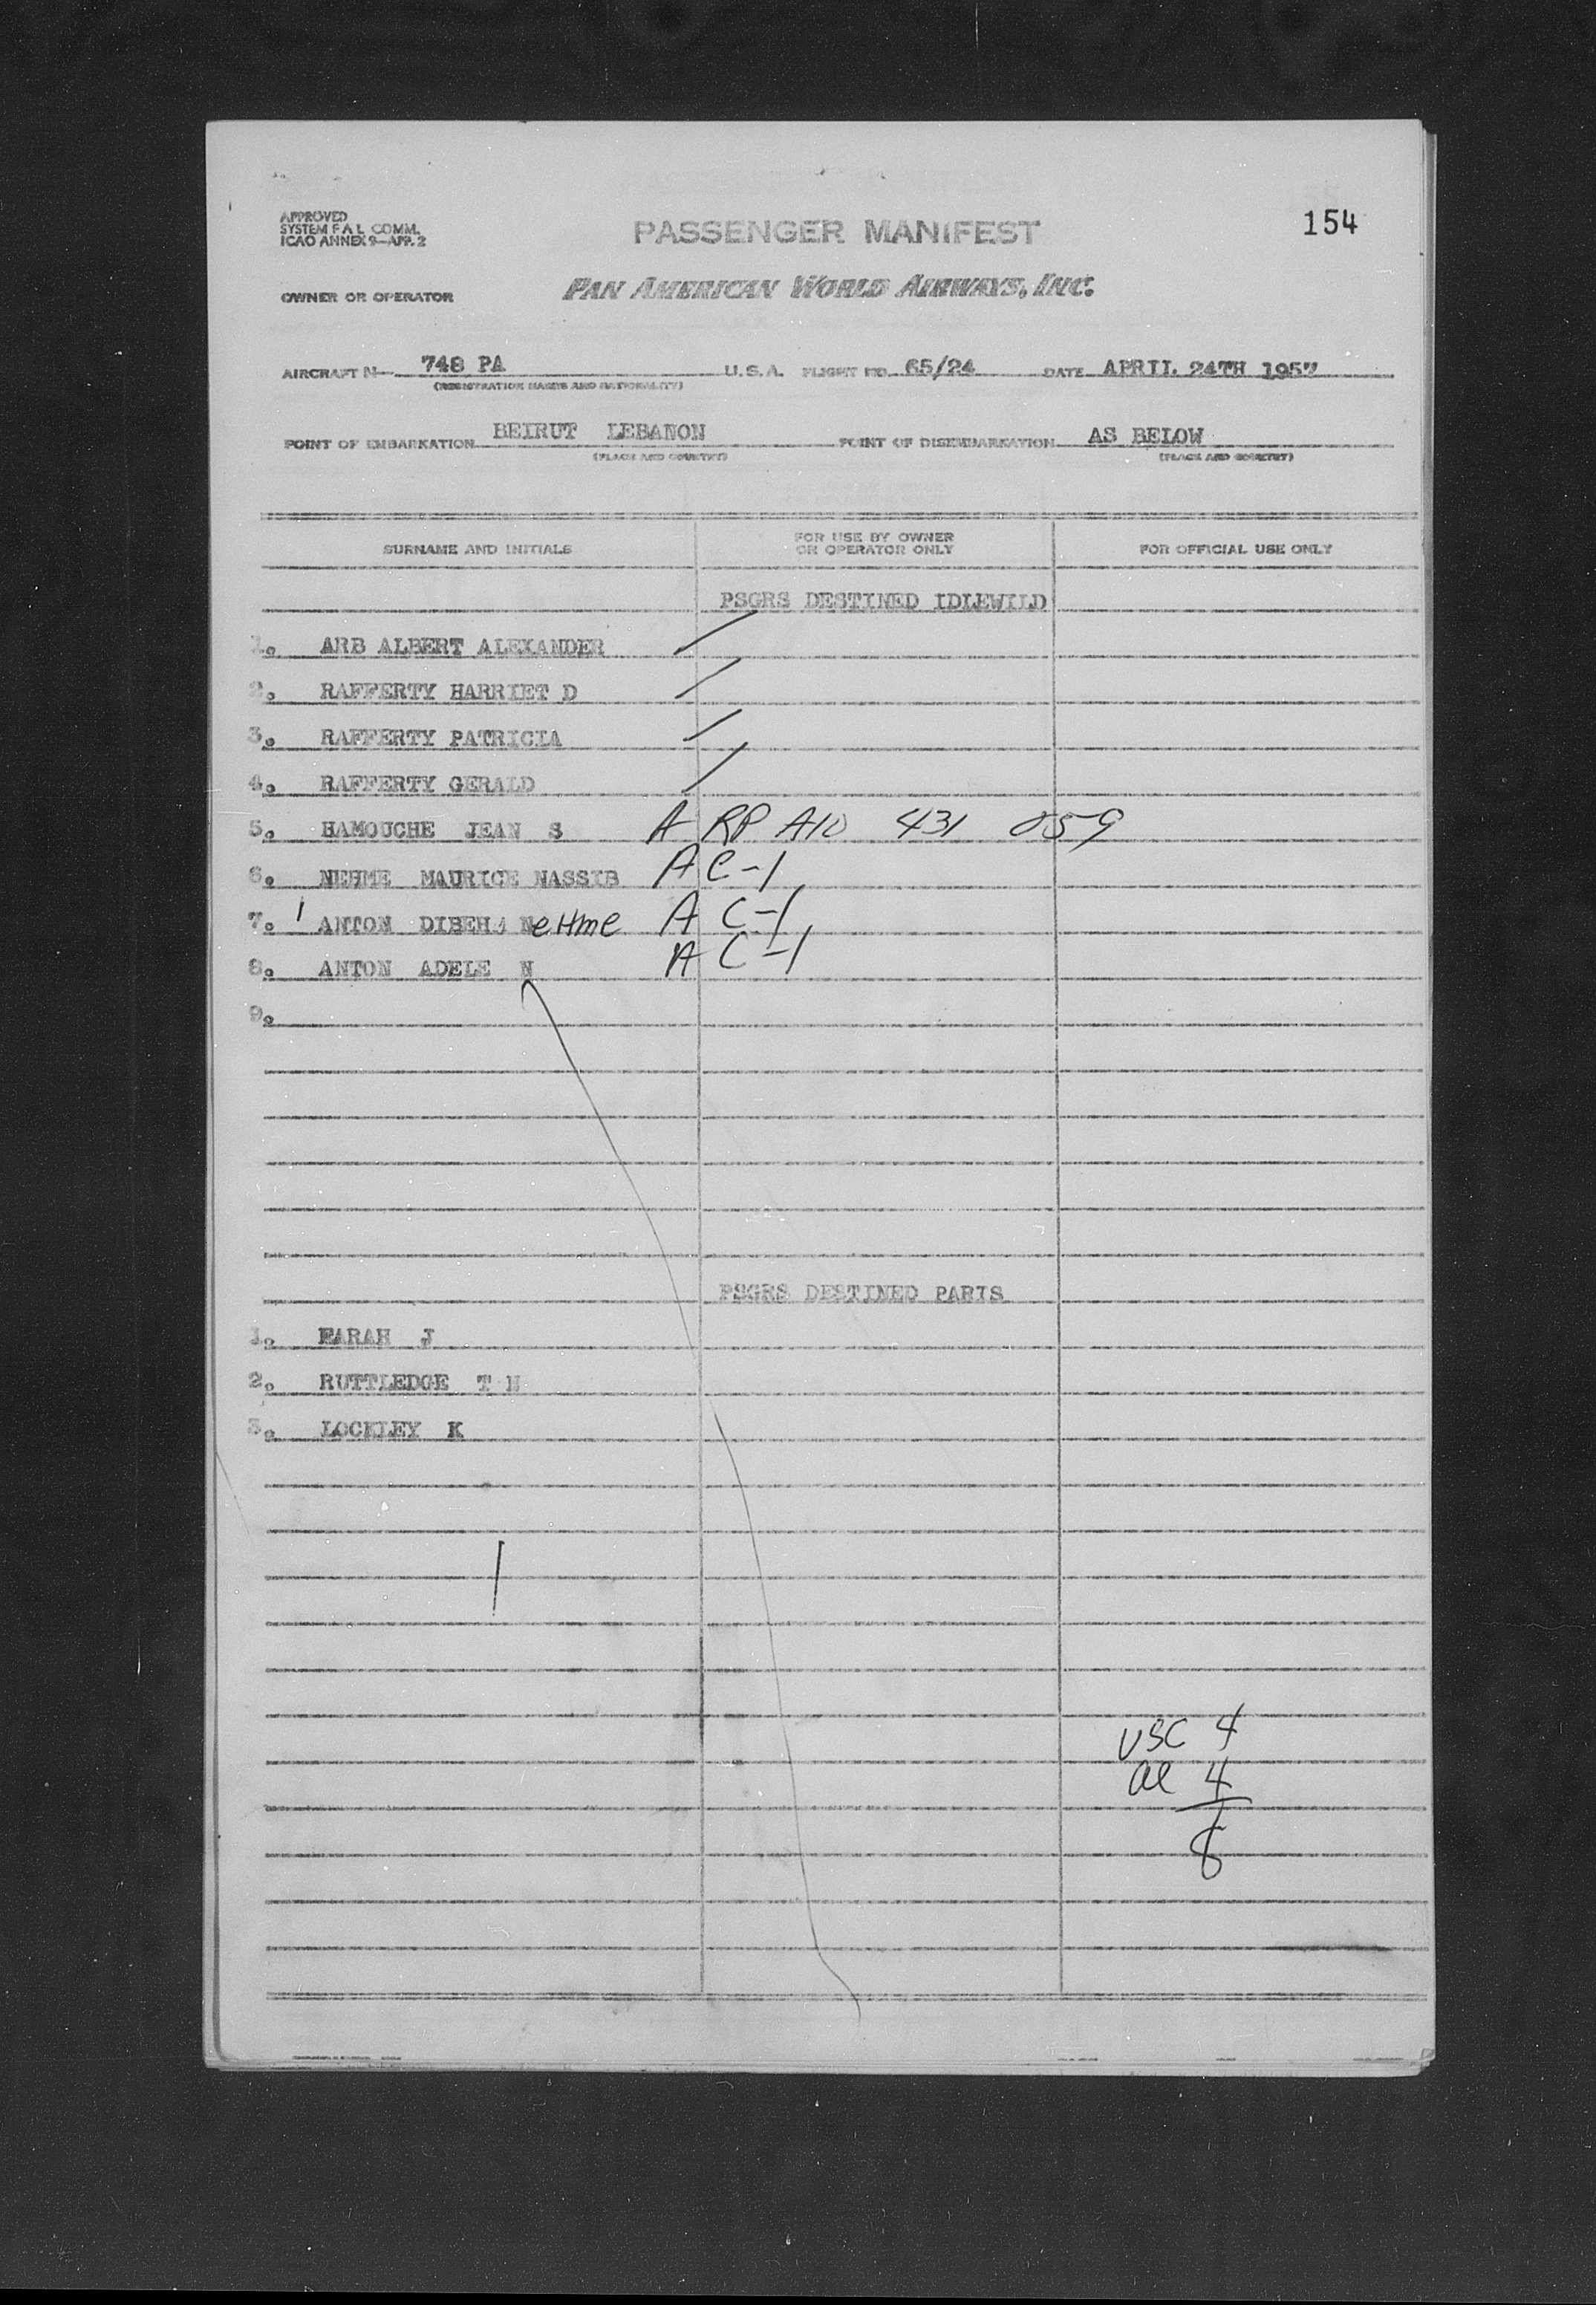 154
APPROVED
SYSTEM F A L COMM.
ICAO ANNEX 9—APP. 2
PASSENGER MANIFEST
OWNER OR OPERATOR PAN AMERICAN WORLD AIRWAYS, INC.
AIRCRAFT N— 748 PA U. S. A. FLIGHT NO. 65/24 DATE APRIL 24TH 1957
(REGISTRATION MARKS AND NATIONALITY)
POINT OF EMBARKATION BEIRUT LEBANON POINT OF DISEMBARKATION AS BELOW
(PLACE AND COUNTRY) (PLACE AND COUNTRY)
SURNAME AND INITIALS FOR USE BY OWNER OR OPERATOR ONLY FOR OFFICIAL USE ONLY
PSGRS DESTINED IDLEWILD
1. ARB ALBERT ALEXANDER /
2. RAFFERTY HARRIET D /
3. RAFFERTY PATRICIA /
4. RAFFERTY GERALD /
5. HAMOUCHE JEAN S A RP A10 431 059
6. NEHME MAURICE NASSIB A C-1
7. 1 ANTON DIBEH NeHme A C-1
8. ANTON ADELE N A C-1
9.
PSGRS DESTINED PARIS
1. FARAH J
2. RUTTLEDGE T H
3. LOCKLEY K
USC 4
al 4
8